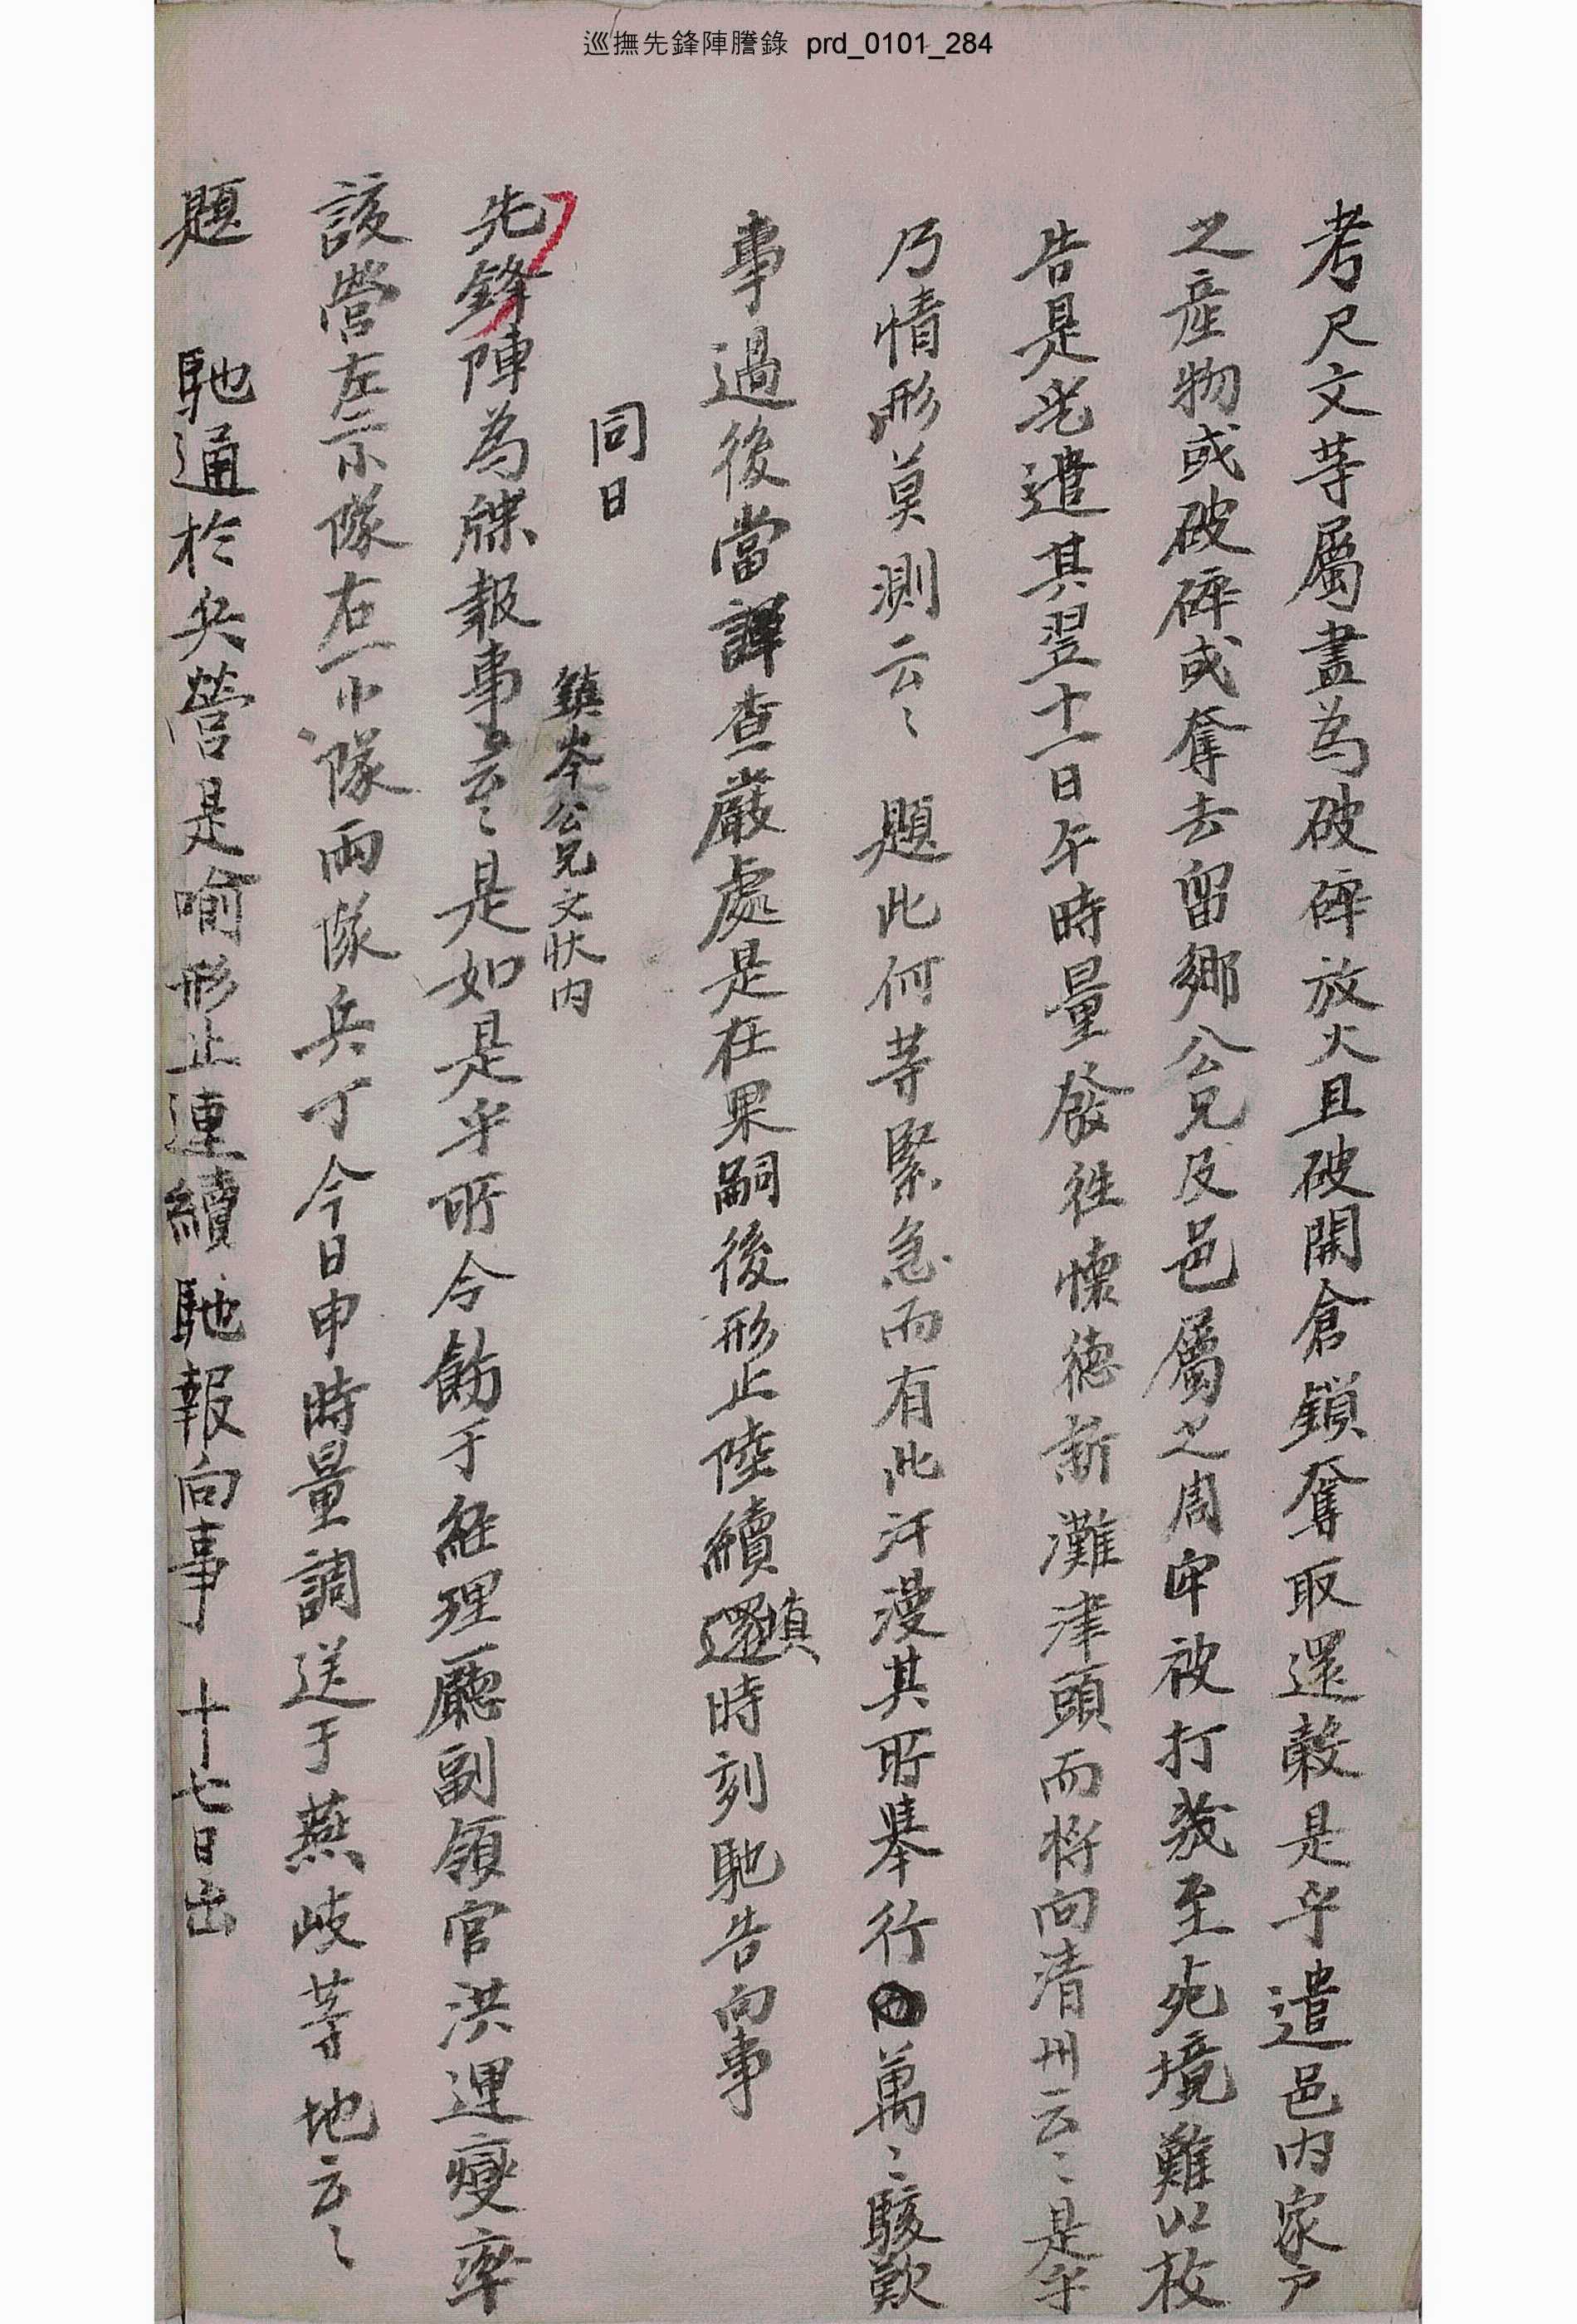 巡撫先鋒陣謄錄 prd_0101_284
考尺文等屬盡爲破碎放火且破開倉鎖奪取還穀是乎遣邑內家戶
之産物或破碎或奪去留鄉公兄及邑屬之周牢被打幾至死境難以枚
告是乎遣其翌十一日午時量發徃懷德新灘津頭而將向淸州云〻是乎
乃情形莫測云〻 題此何等緊急而有此汗漫其所擧行萬〻駭歎
事過後當詳查嚴處是在果嗣後形止陸續趂時刻馳告向事
同日
鎮岑公兄文狀內
先鋒陣爲牒報事云〻是如是乎所今飭于經理廳副領官洪運燮率
該營左二小隊右一小隊兩隊兵丁今日申時量調送于燕岐等地云〻
題 馳通於兵營是喻形止連續馳報向事 十七日出